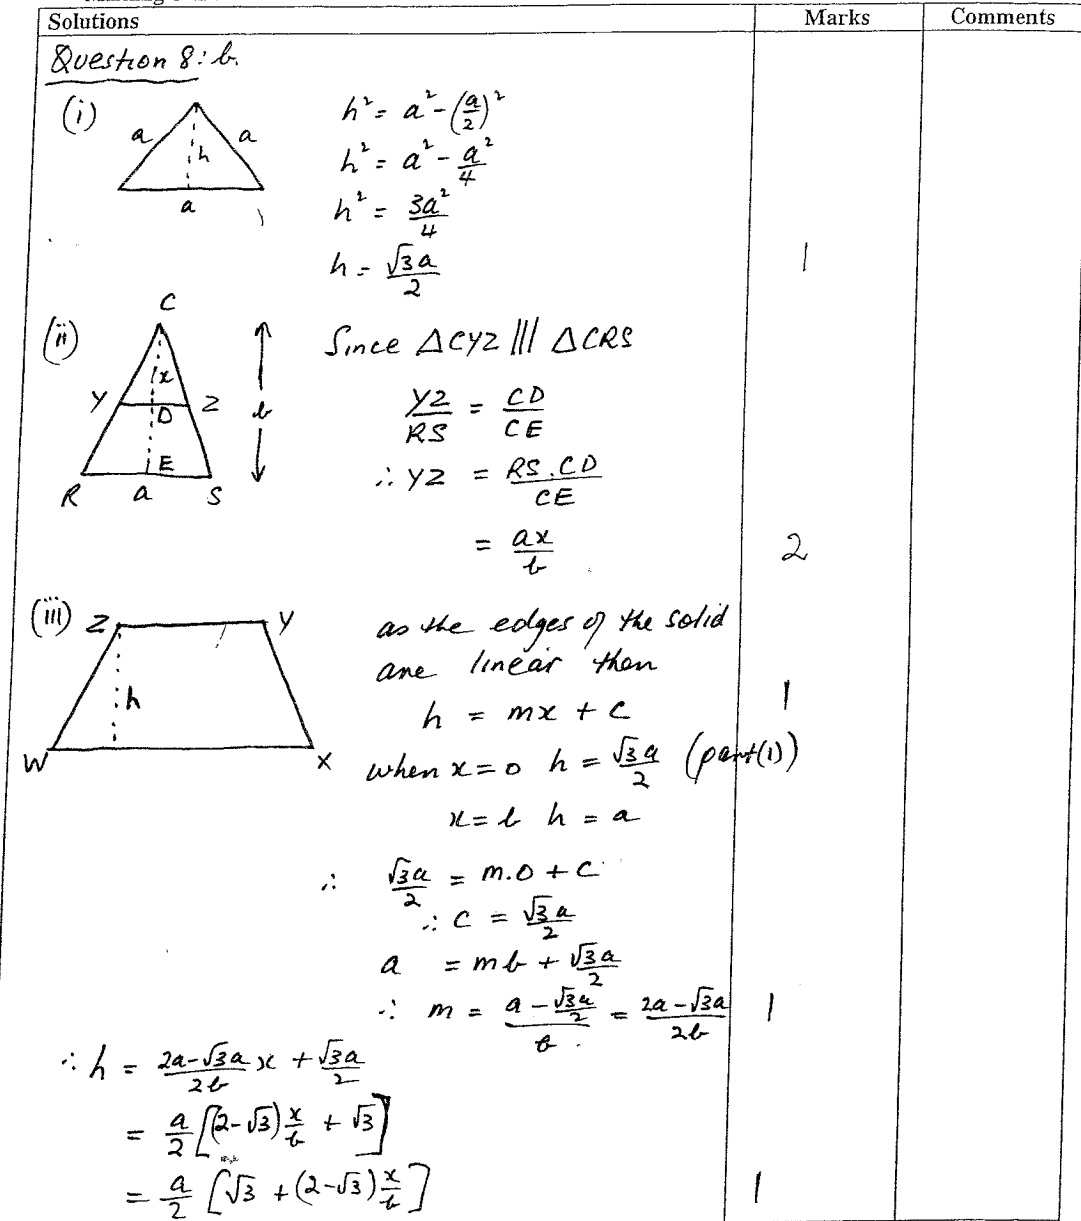 Solutions Marks Comments
Question 8: b.
(i) a a h a
h² = a² - (a/2)²
h² = a² - a²/4
h² = 3a²/4
h = √3a/2 1
(ii) C x Y D Z b E R a S
Since ΔCYZ ||| ΔCRS
YZ/RS = CD/CE
∴ YZ = RS.CD/CE
= ax/b 2
(iii) Z Y h W X
as the edges of the solid
are linear then
h = mx + c 1
when x=0 h = √3a/2 (part(1))
x=b h = a
∴ √3a/2 = m.0 + c
∴ c = √3a/2
a = mb + √3a/2
∴ m = (a - √3a/2)/b = (2a-√3a)/2b 1
∴ h = (2a-√3a)/2b x + √3a/2
= a/2 [(2-√3) x/b + √3]
= a/2 [√3 + (2-√3) x/b] 1